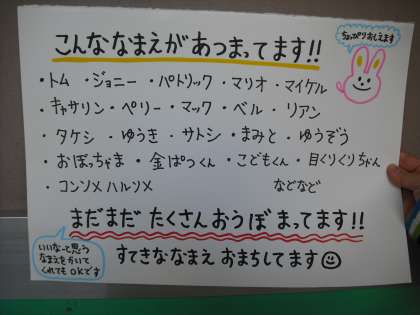 こんななまえがあつまってます!!
ちょっぴりおしえます
・トム ・ジョニー ・パトリック ・マリオ ・マイケル
・キャサリン ・ペリー ・マック ・ベル ・リアン
・タケシ ・ゆうき ・サトシ ・まみと ・ゆうぞう
・おぼっちゃま ・金ぱつくん ・こどもくん ・目くりくりちゃん
・コンソメハルソメ などなど
まだまだ たくさんおうぼ まってます!!
いいなって思う
なまえをかいて
くれてもOKです
すてきななまえ おまちしてます